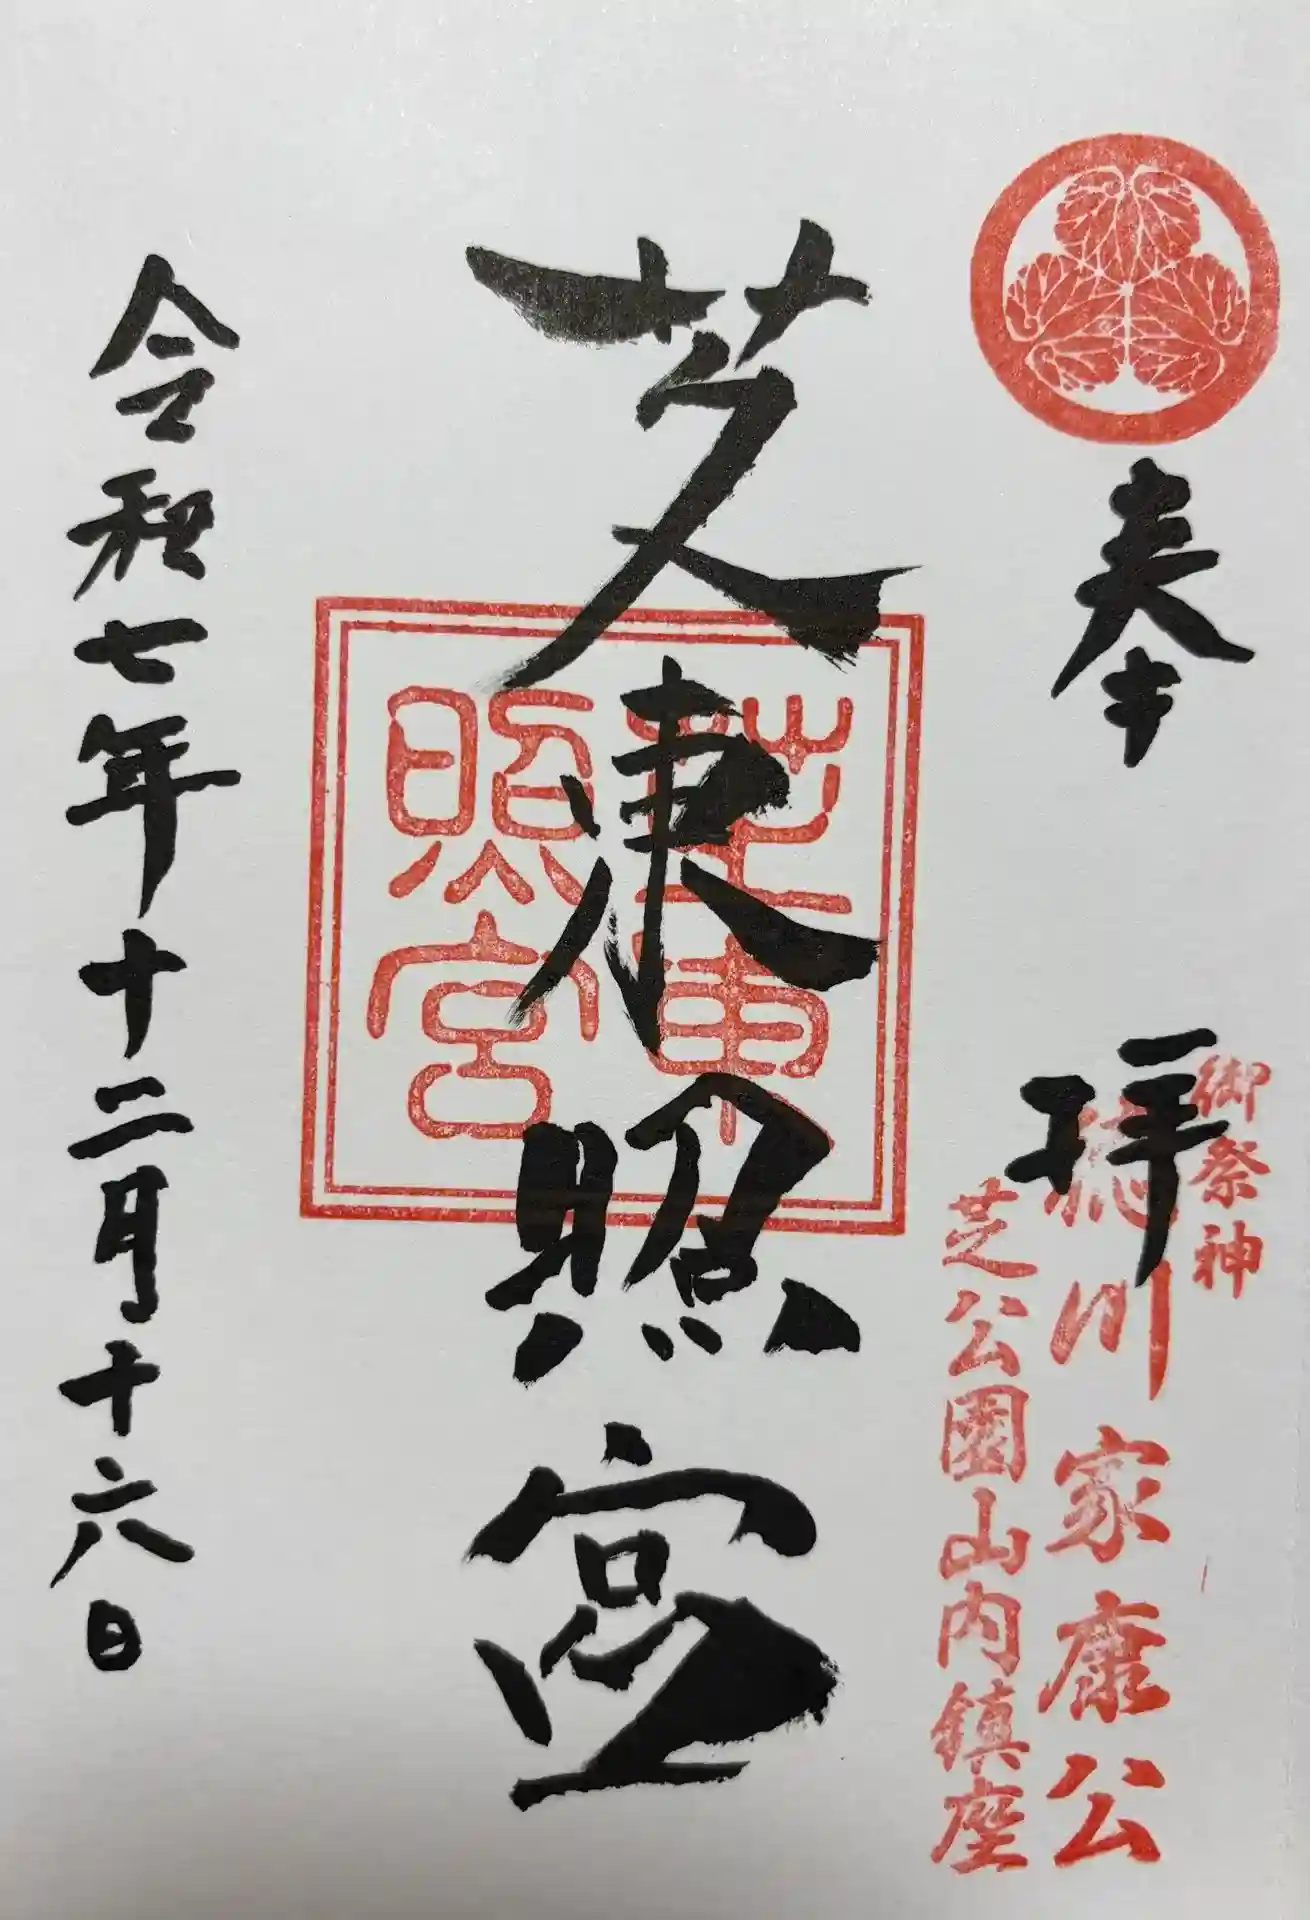 奉拝
御祭神
徳川家康公
芝公園山内鎮座
芝東照宮
芝東
照宮
令和七年十二月十六日